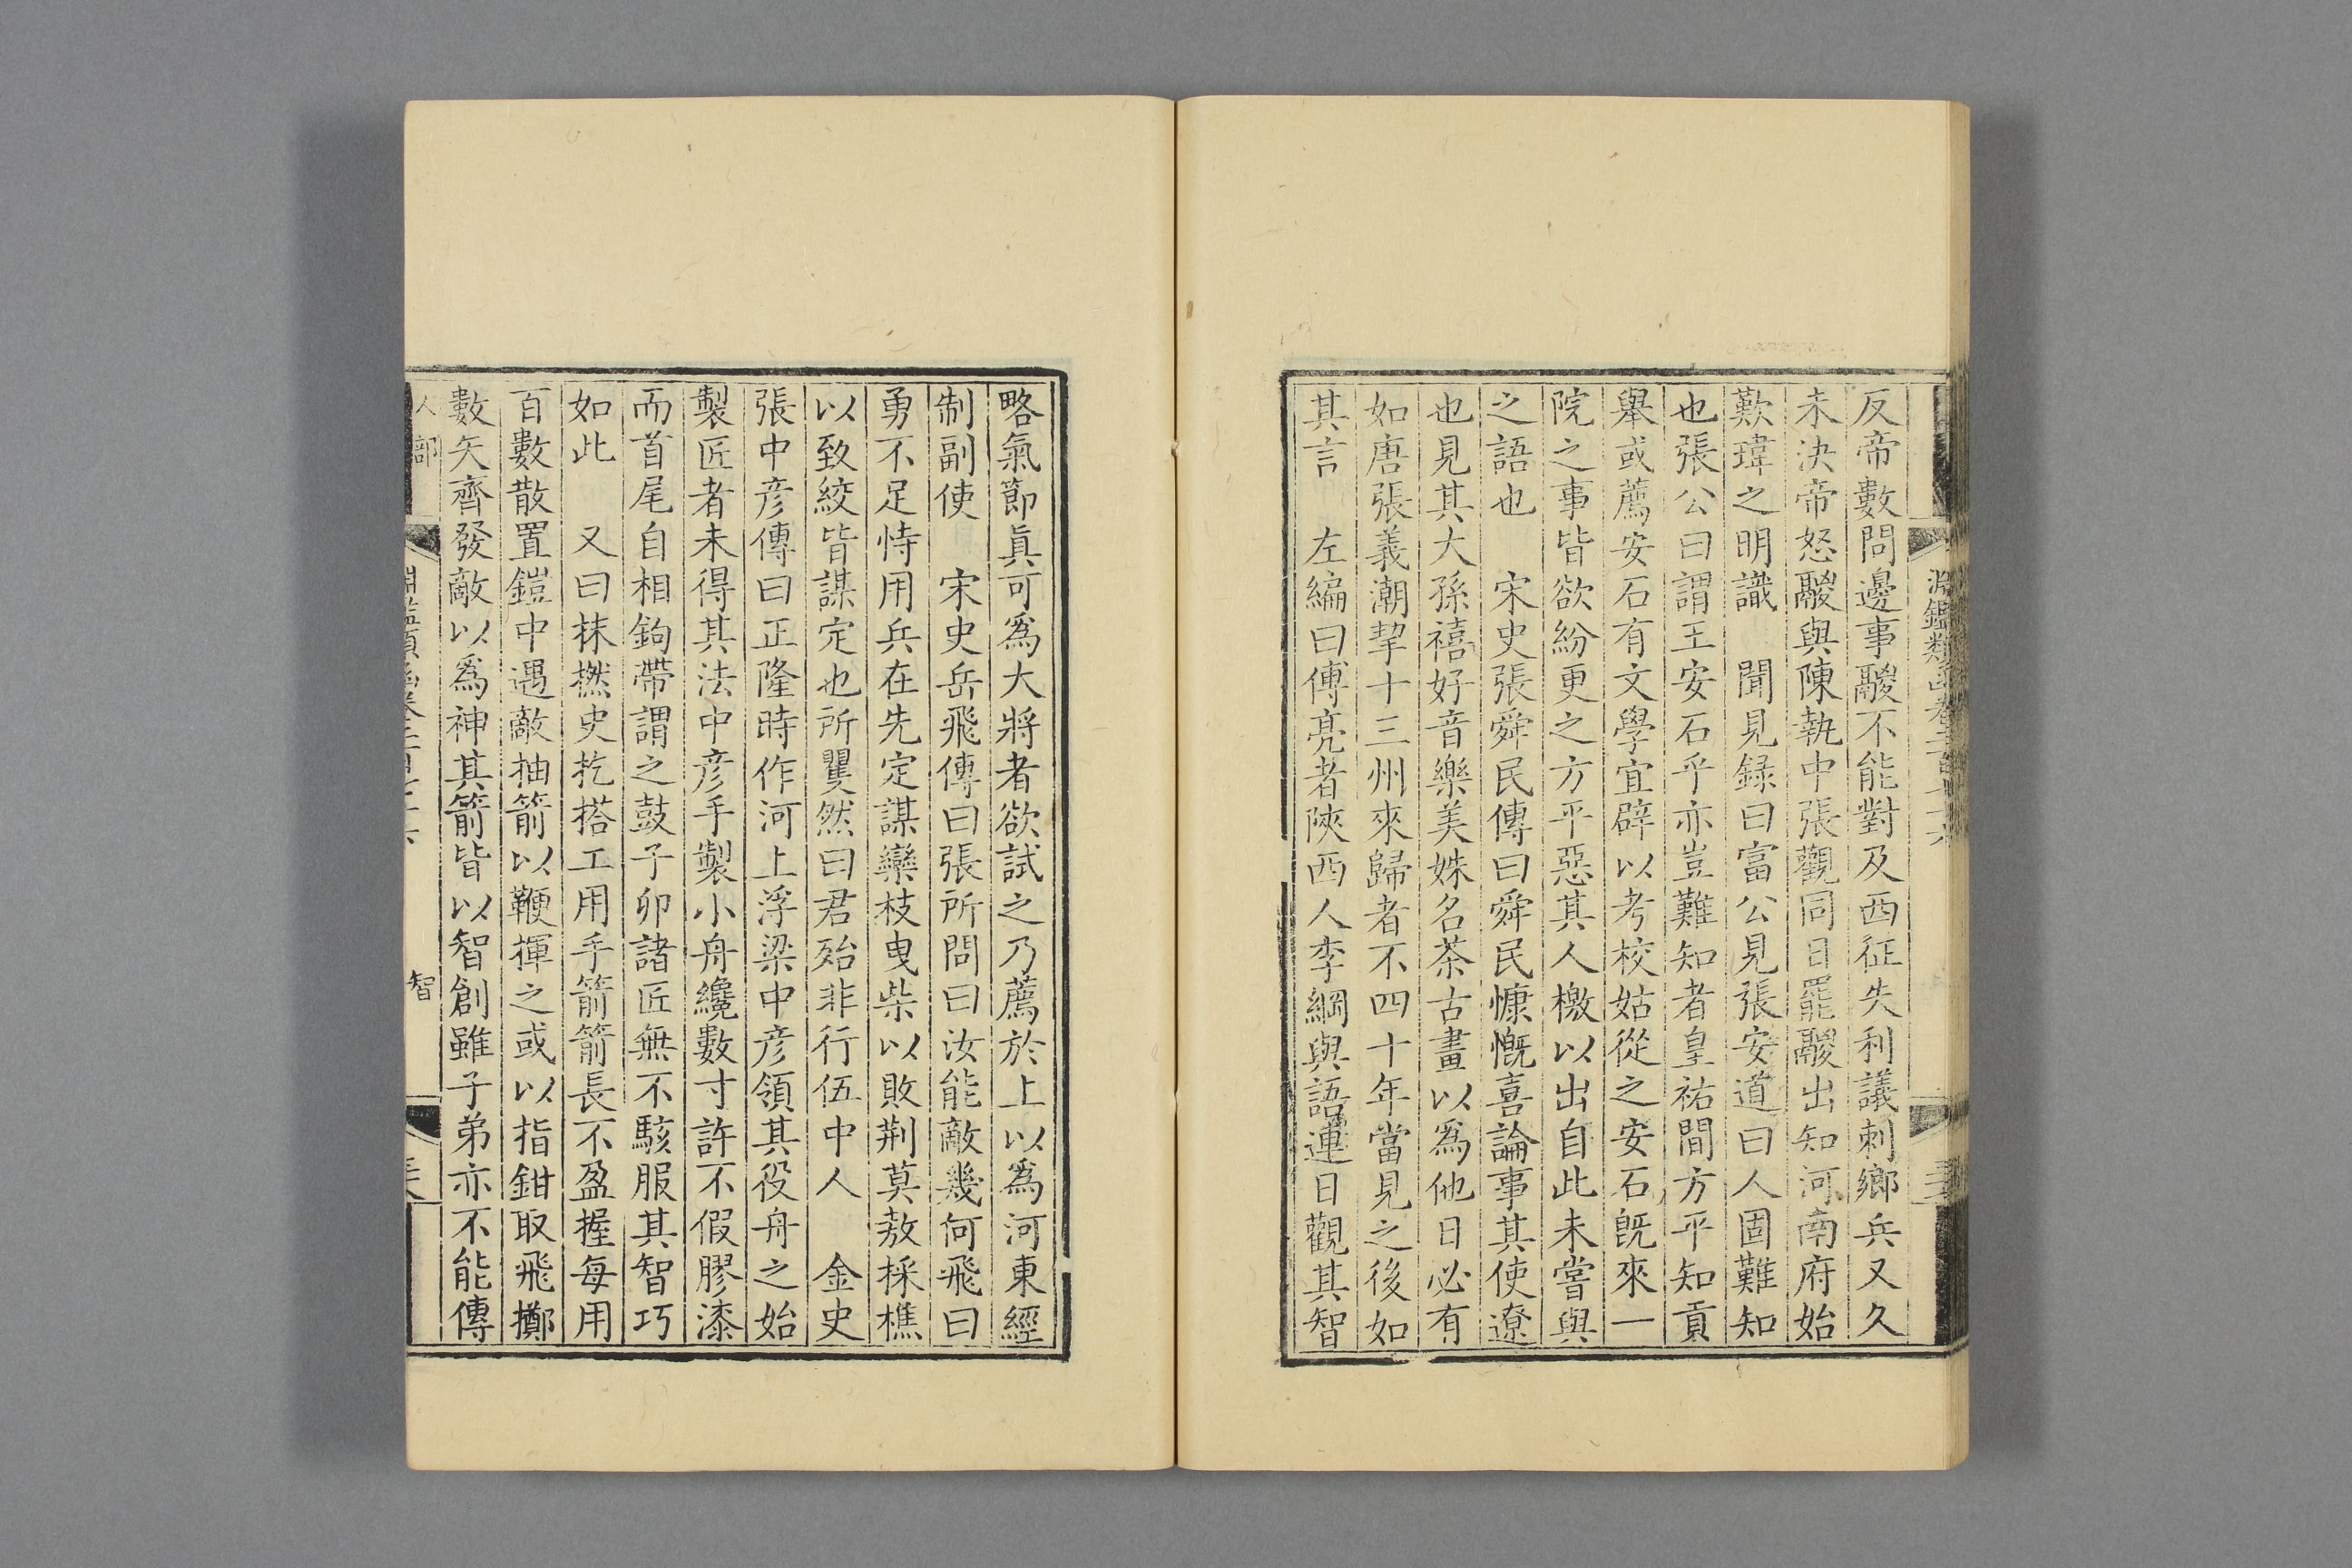 淵鑑類函卷二百七十六
反帝數問邊事鬷不能對及西征失利議刺鄉兵又久
未決帝怒鬷與陳執中張觀同日罷鬷出知河南府始
歎瑋之明識　聞見録曰富公見張安道曰人固難知
也張公曰謂王安石乎亦豈難知者皇祐間方平知貢
舉或薦安石有文學宜辟以考校姑從之安石旣來一
院之事皆欲紛更之方平惡其人檄以出自此未嘗與
之語也　宋史張舜民傳曰舜民慷慨喜論事其使遼
也見其大孫禧好音樂美姝名茶古畫以爲他日必有
如唐張義潮挈十三州來歸者不四十年當見之後如
其言　左編曰傅亮者陝西人李綱與語連日觀其智
略氣節眞可爲大將者欲試之乃薦於上以爲河東經
制副使　宋史岳飛傳曰張所問曰汝能敵幾何飛曰
勇不足恃用兵在先定謀欒枝曳柴以敗荆莫敖採樵
以致絞皆謀定也所矍然曰君殆非行伍中人　金史
張中彦傳曰正隆時作河上浮梁中彦領其役舟之始
製匠者未得其法中彦手製小舟纔數寸許不假膠漆
而首尾自相鉤帶謂之鼓子卯諸匠無不駭服其智巧
如此　又曰抹撚史扢搭工用手箭箭長不盈握每用
百數散置鎧中遇敵抽箭以鞭揮之或以指鉗取飛擲
數矢齊發敵以爲神其箭皆以智創雖子弟亦不能傳
人部
智